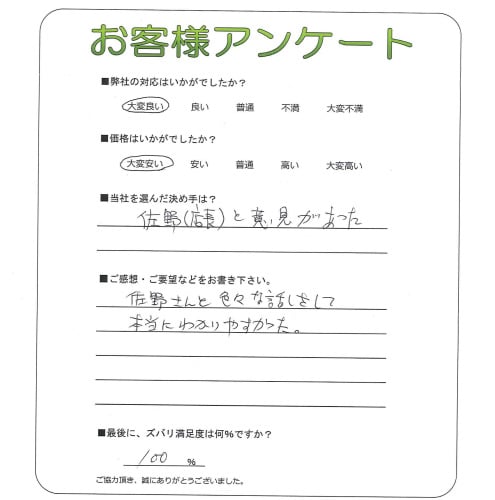 お客様アンケート
■弊社の対応はいかがでしたか?
大変良い 良い 普通 不満 大変不満
■価格はいかがでしたか?
大変安い 安い 普通 高い 大変高い
■当社を選んだ決め手は?
佐野(店長)と意見があった
■ご感想・ご要望などをお書き下さい。
佐野さんと色々な話しをして
本当にわかりやすかった。
■最後に、ズバリ満足度は何%ですか?
100 %
ご協力頂き、誠にありがとうございました。